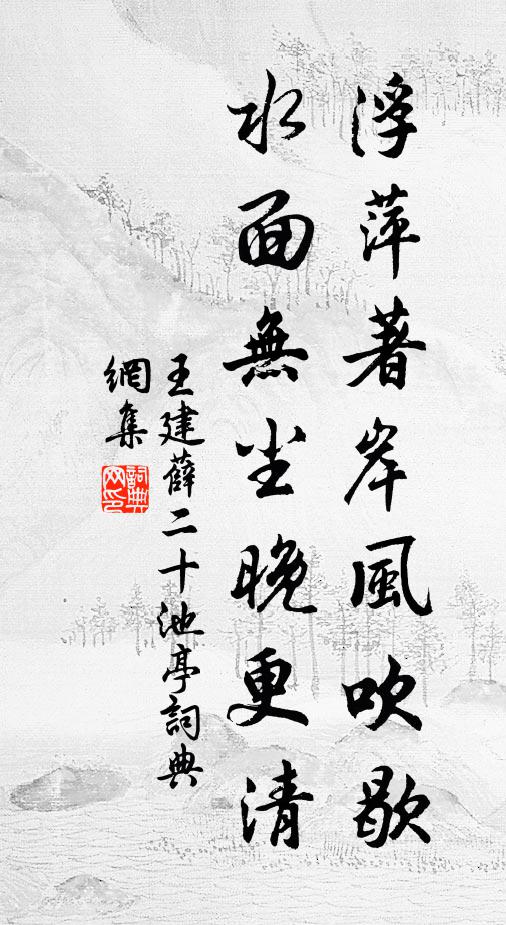 浮萍著岸風吹歇
水面無尘晚更清
王建薛二十池亭詞典
網集
詞典
网印